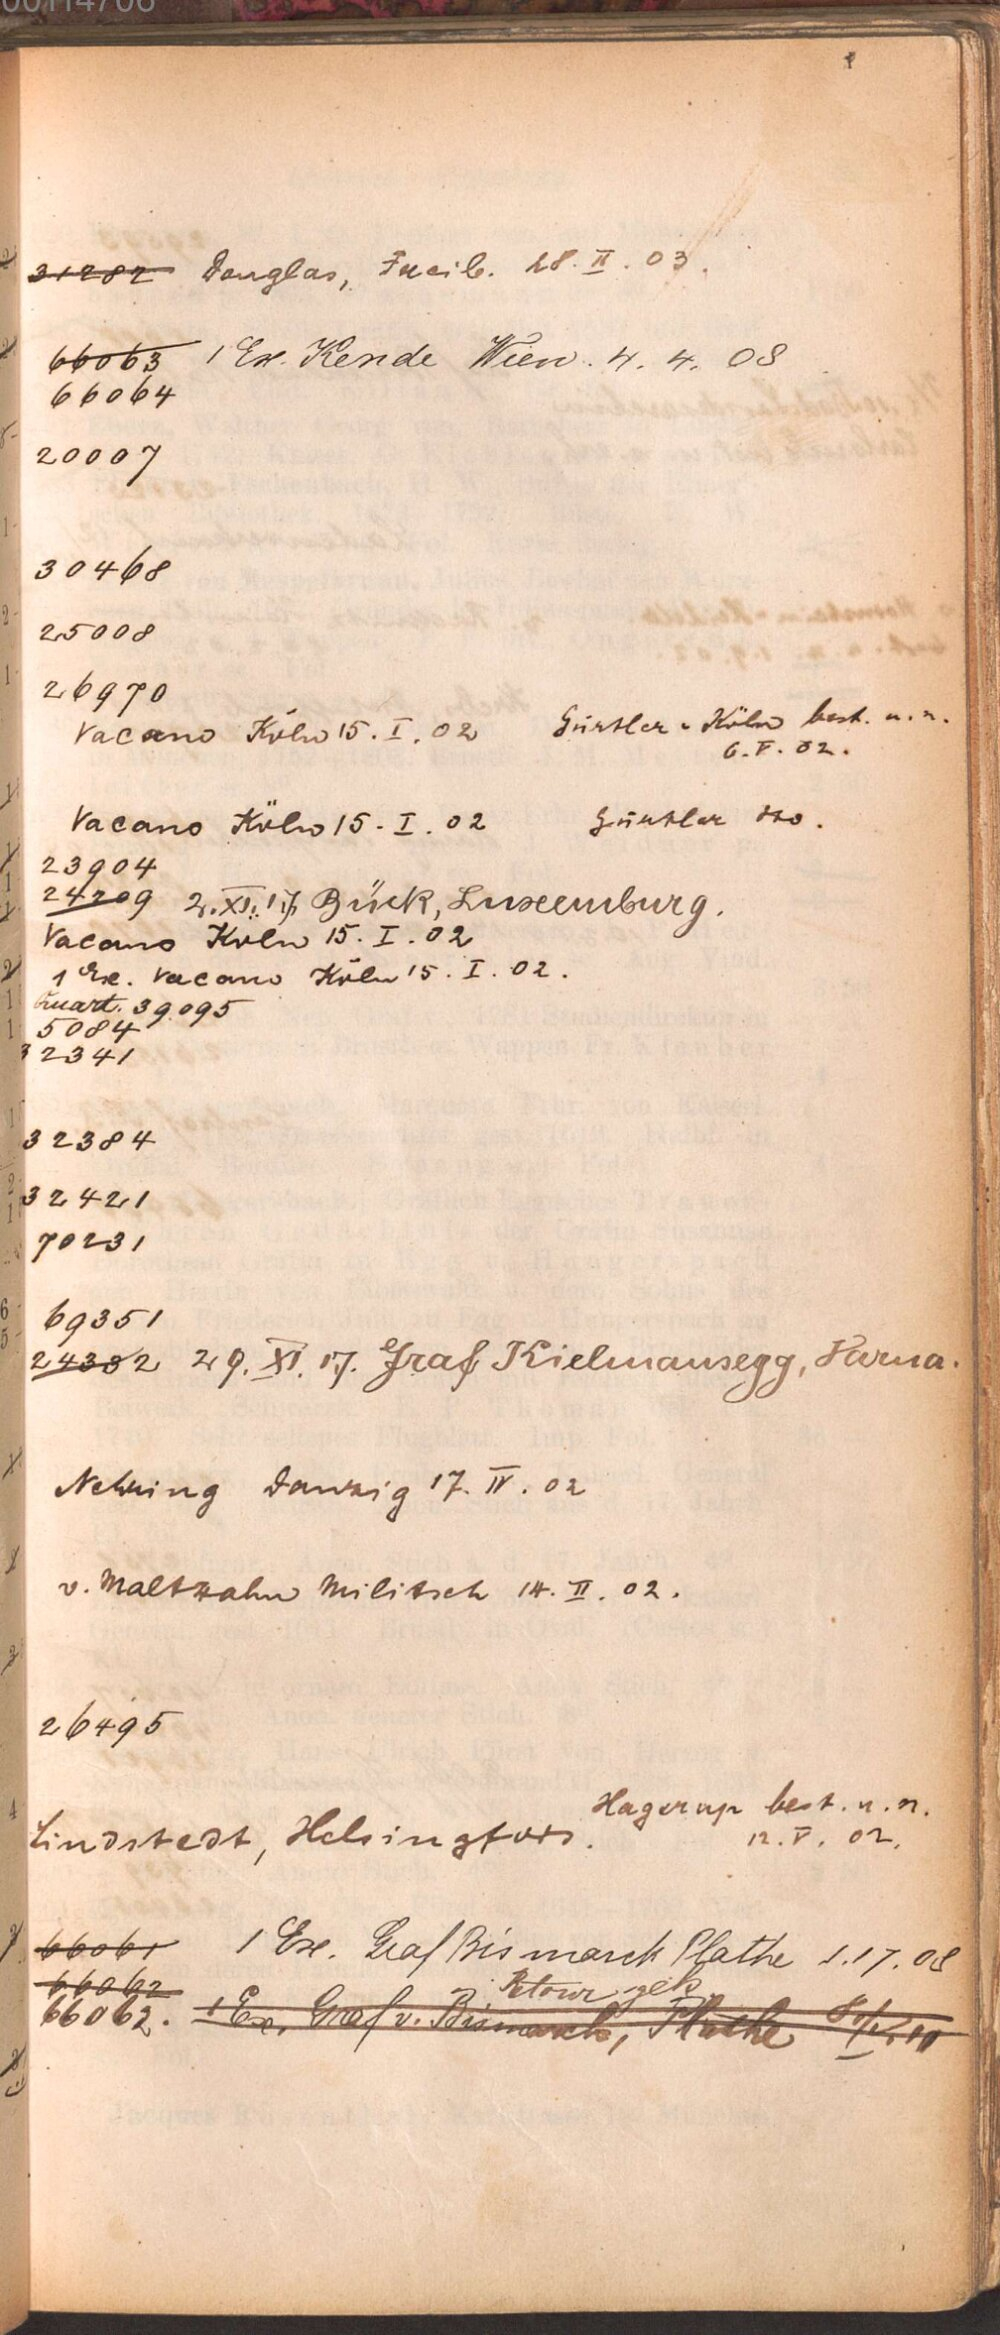 31282 Douglas, Freib. 28. II. 03.
66063 1 Ex. Kende Wien. 4. 4. 08
66064
20007
30468
25008
26970
Vacano Köln 15. I. 02 Gürtler-Köln best. n. n.
6. V. 02.
Vacano Köln 15. I. 02 Gürtler dto.
23904
24209 2. XI. 17. Bück, Luxemburg.
Vacano Köln 15. I. 02
1 Ex. Vacano Köln 15. I. 02.
Quart. 39095
5084
32341
32384
32421
70231
69351
24382 29. XI. 17. Graf Kielmansegg, Varna.
Nehring Danzig 17. IV. 02
v. Maltzahn Militsch 14. II. 02.
26495
Hagerup best. n. n.
Lindstedt, Helsingfors. 12. V. 02.
66061 1 Ex. Graf Bismarck Plathe 1.17.08
66062 Retour gek.
66062. 1 Ex. Graf v. Bismarck, Plathe